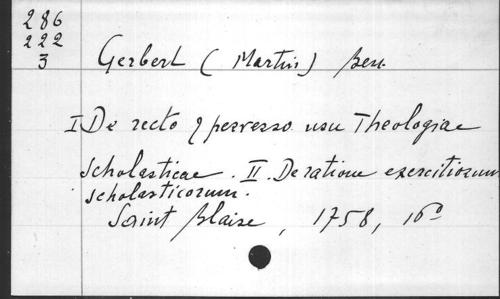 286
222
3
Gerbert (Martin) Ben.
I De recto & perverso usu Theologiae
Scholasticae. II. De ratione exercitiorum
scholasticorum.
Saint Blaise, 1758, 16°